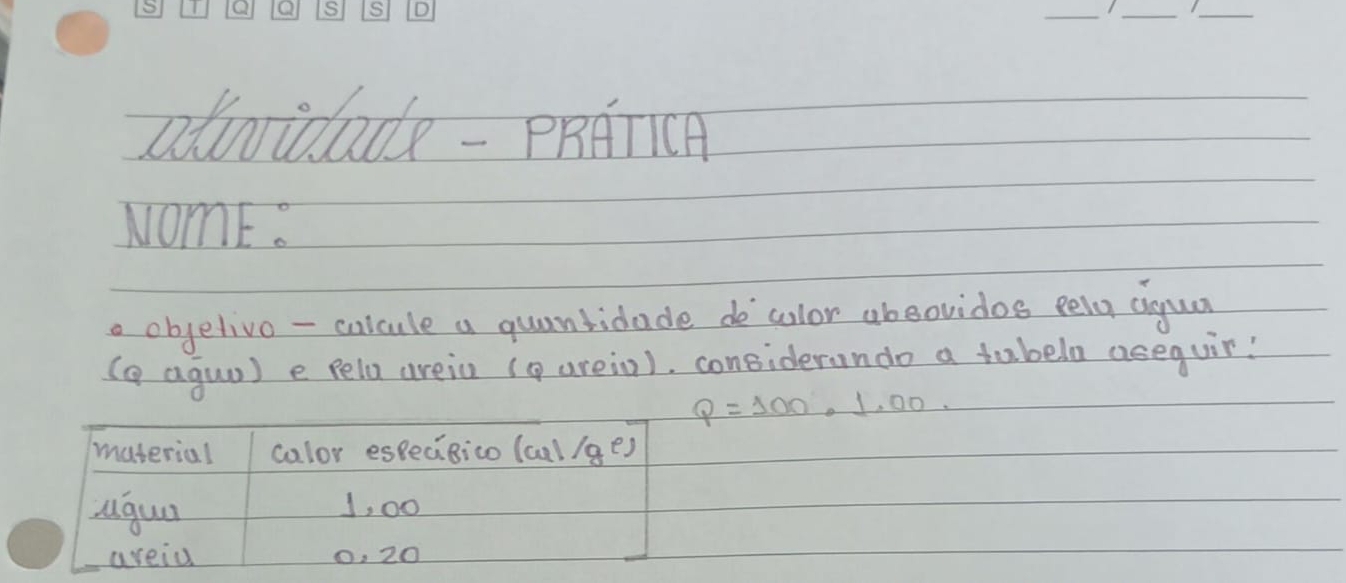 S T Q Q S S D
__/__/__
atividade - PRÁTICA
NOME:
• objetivo - calcule a quantidade de calor absovidos pela água
(Q água) e pela areia (Q areia). considerando a tabela aseguir:
Q = 100 . 1.00.
material calor específico (cal/g°C)
água 1,00
areia 0,20